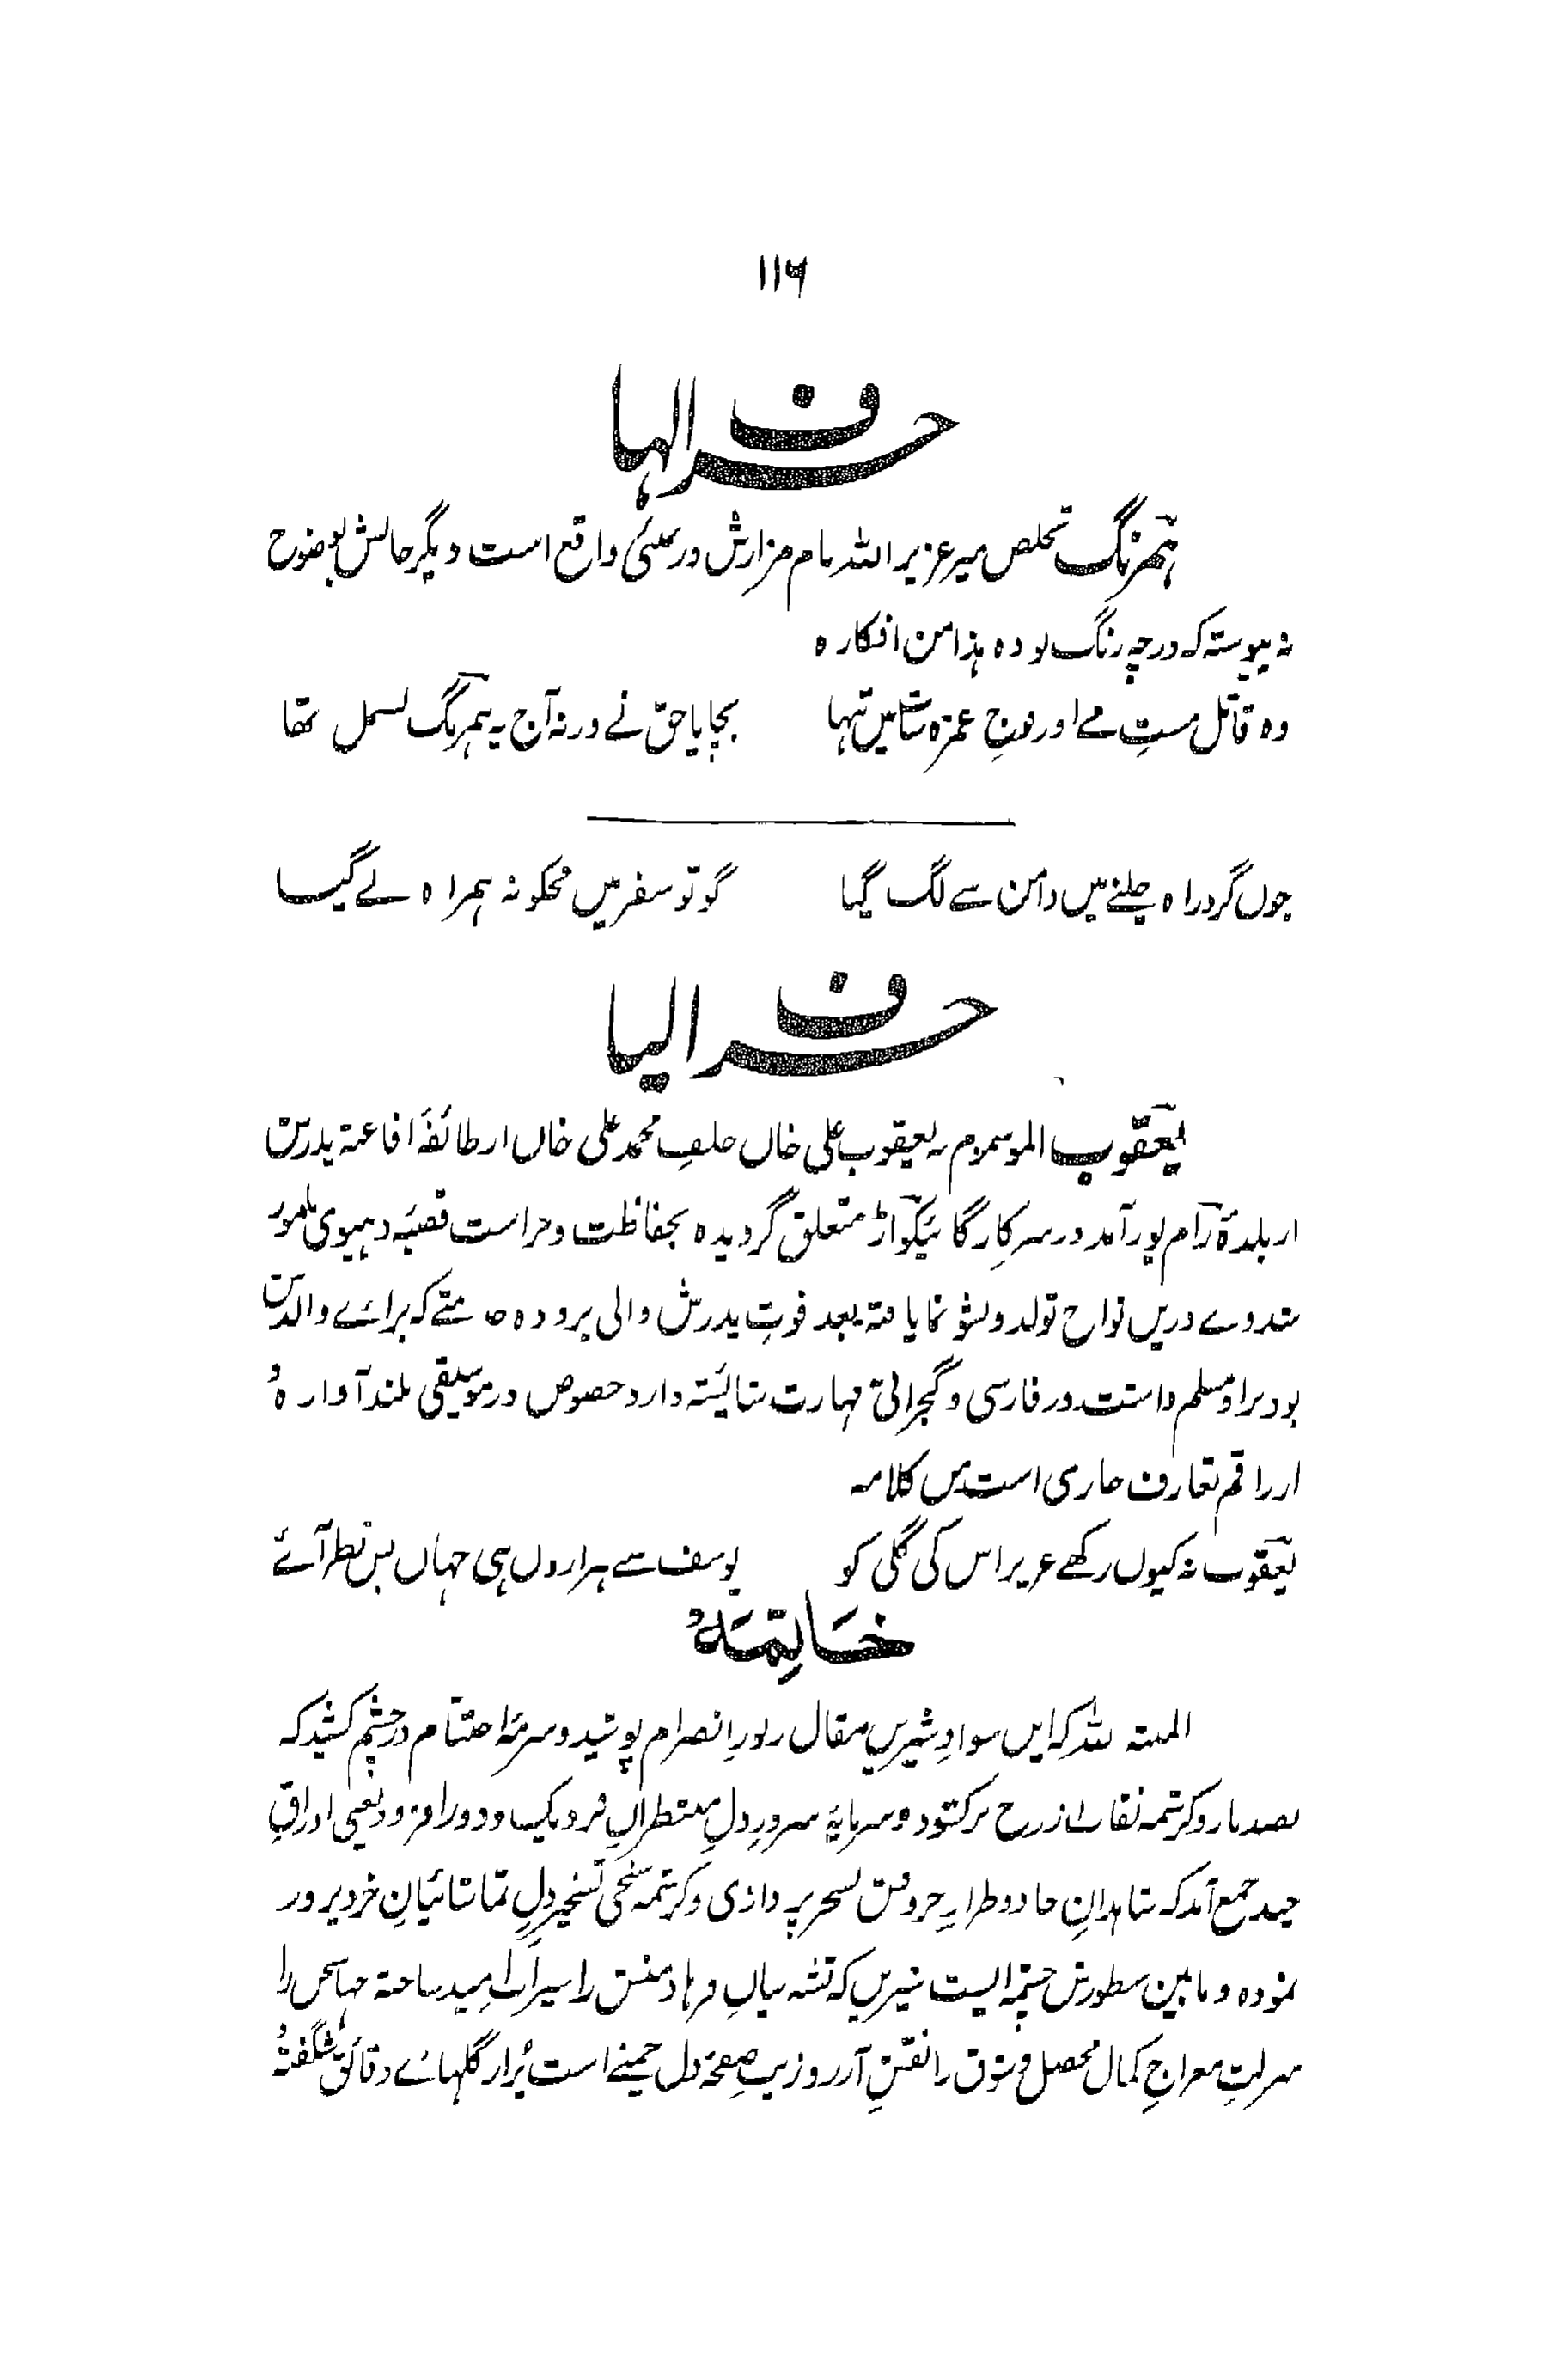 ۱۱۶
حرف الہا
ہمرنگ تخلص میر عزیز اللہ نام مزارش در بمبئی واقع است دیگر حالش بوضوح
نہ پیوستہ کہ در چہ رنگ بودہ ہذا من افکارہ
وہ قاتل مستِ مے اور فوجِ غمزہ ساتھ میں تنہا بچایا حق نے ورنہ آج یہ ہمرنگ بسمل تھا
چوں گرد راہ چلنے میں دامن سے لگ گیا گو تو سفر میں مجکو نہ ہمراہ لے گیا
حرف الیا
یعقوب الموسوم بہ یعقوب علی خاں خلفِ محمد علی خاں از طائفۂ افاغنہ پدرش
از بلدۂ رام پور آمد در سرکار گائیکواڑ متعلق گردیدہ بحفاظت وحراست قصبۂ دہیوی مامور
شد وے دریں نواح تولد و نشو نما یافتہ بعد فوتِ پدرش والی برودہ کہ برائے والدش
بود براو مسلم داشت در فارسی و گجراتی مہارت شائستہ دارد خصوص در موسیقی بلند آوازہ
از راقم تعارف جاری است من کلامہ
یعقوب نہ کیوں رکھے عزیز اس کی گلی کو یوسف سے ہزاروں ہی جہاں بس نظر آئے
خاتمہ
المنۃ للہ کہ ایں سوادِ شیریں مقال زیورِ انصرام پوشید و سرمۂ اختتام در چشم کشید کہ
بصد ناز و کرشمہ نقاب از رخ برکشود و سرمایۂ سرورِ دلِ منتظراں یعنی اوراقِ
چند جمع آمد کہ شاہدانِ جادو طرازِ حروفش بسحر پردازی و کرشمہ سنجی تسخیرِ دلِ تماشائیانِ خرد پرور
نمودہ و مابین سطورش چشمہ ایست شیریں کہ تشنہ لبانِ فرہاد منش را سیراب امید ساختہ
معراجِ کمال را نقشِ آرزو زیبِ صفحۂ دل چمنے است پُر از گلہائے دقائق شگفتہ